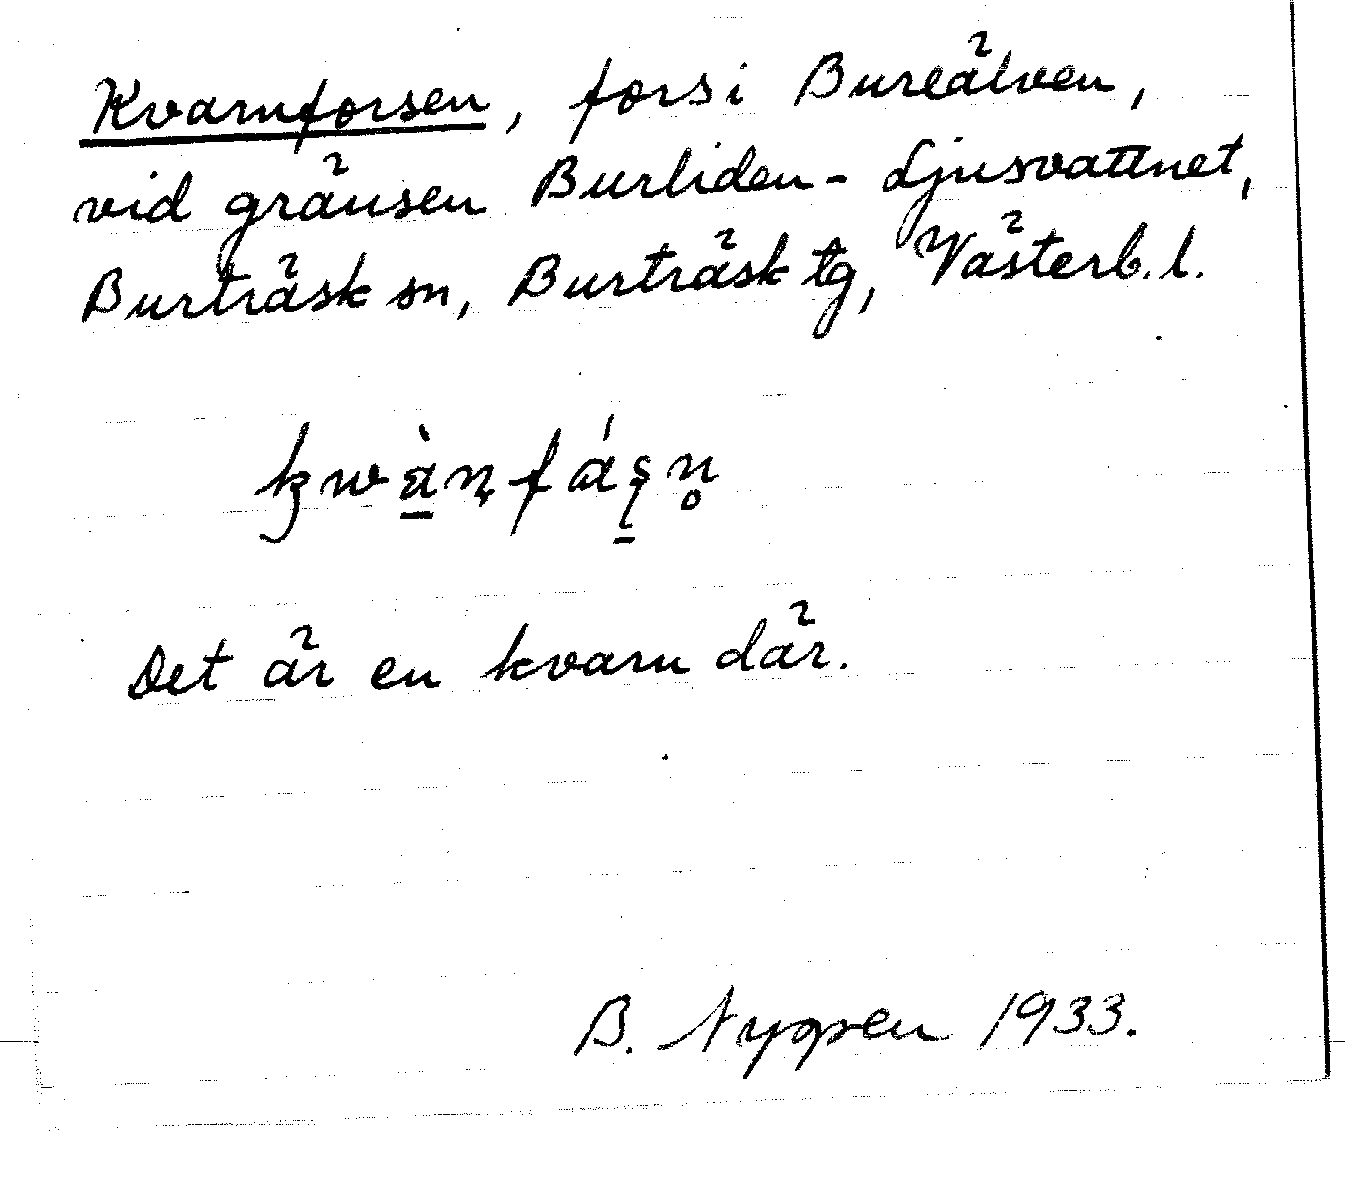 Kvarnforsen, fors i Bureälven,
vid gränsen Burliden - Ljusvattnet,
Burträsk sn, Burträsk tg, Västerb. l.
kwà̱ɳfáʂn̥
Det är en kvarn där.
B. 1933.